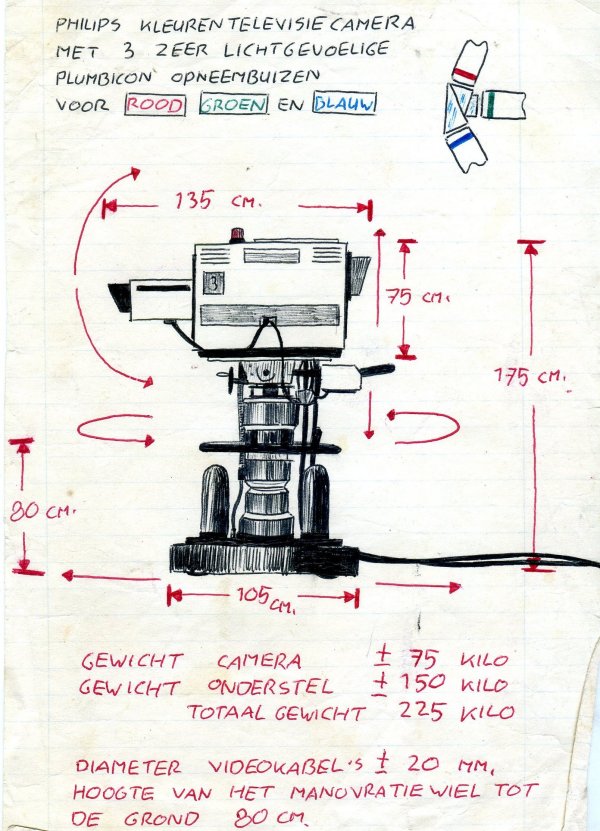 PHILIPS KLEURENTELEVISIECAMERA
MET 3 ZEER LICHTGEVOELIGE
PLUMBICON OPNEEMBUIZEN
VOOR ROOD GROEN EN BLAUW
135 CM.
3
75 CM.
175 CM.
80 CM.
105 CM.
GEWICHT CAMERA ± 75 KILO
GEWICHT ONDERSTEL ± 150 KILO
TOTAAL GEWICHT 225 KILO
DIAMETER VIDEOKABEL'S ± 20 MM.
HOOGTE VAN HET MANOVRATIEWIEL TOT
DE GROND 80 CM.